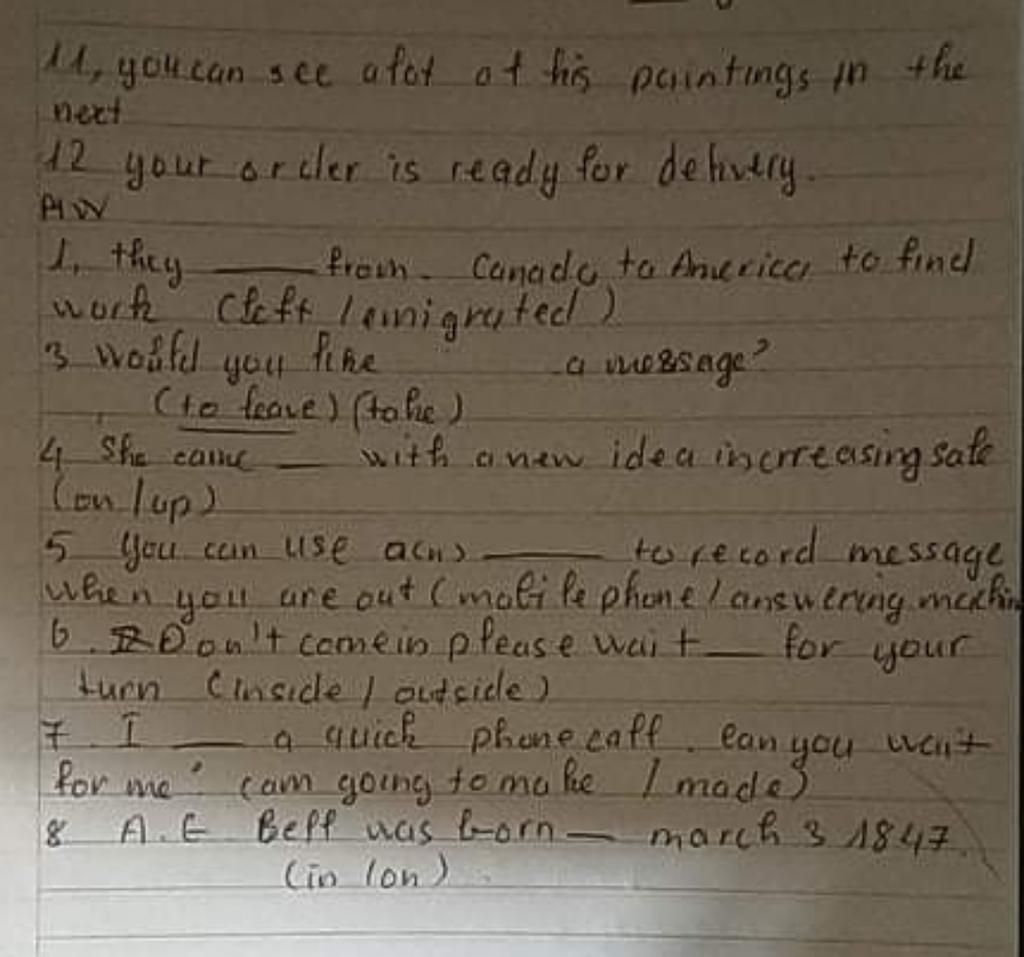 11, you can see a lot of his paintings in the
next
12 your order is ready for delivery.
HW
1, they ____ from Canada to America to find
work (left / emigrated)
3 would you like a message?
(to leave) (take)
4 She came __ with a new idea incrreasing safe
(on / up)
5 you can use a(n) ____ to record message
when you are out (mobile phone / answering machin
6. Don't come in please wait __ for your
turn (inside / outside)
7. I ___ a quick phone call. Can you wait
for me (am going to make / made)
8 A.G Bell was born __ march 3 1847.
(in / on).